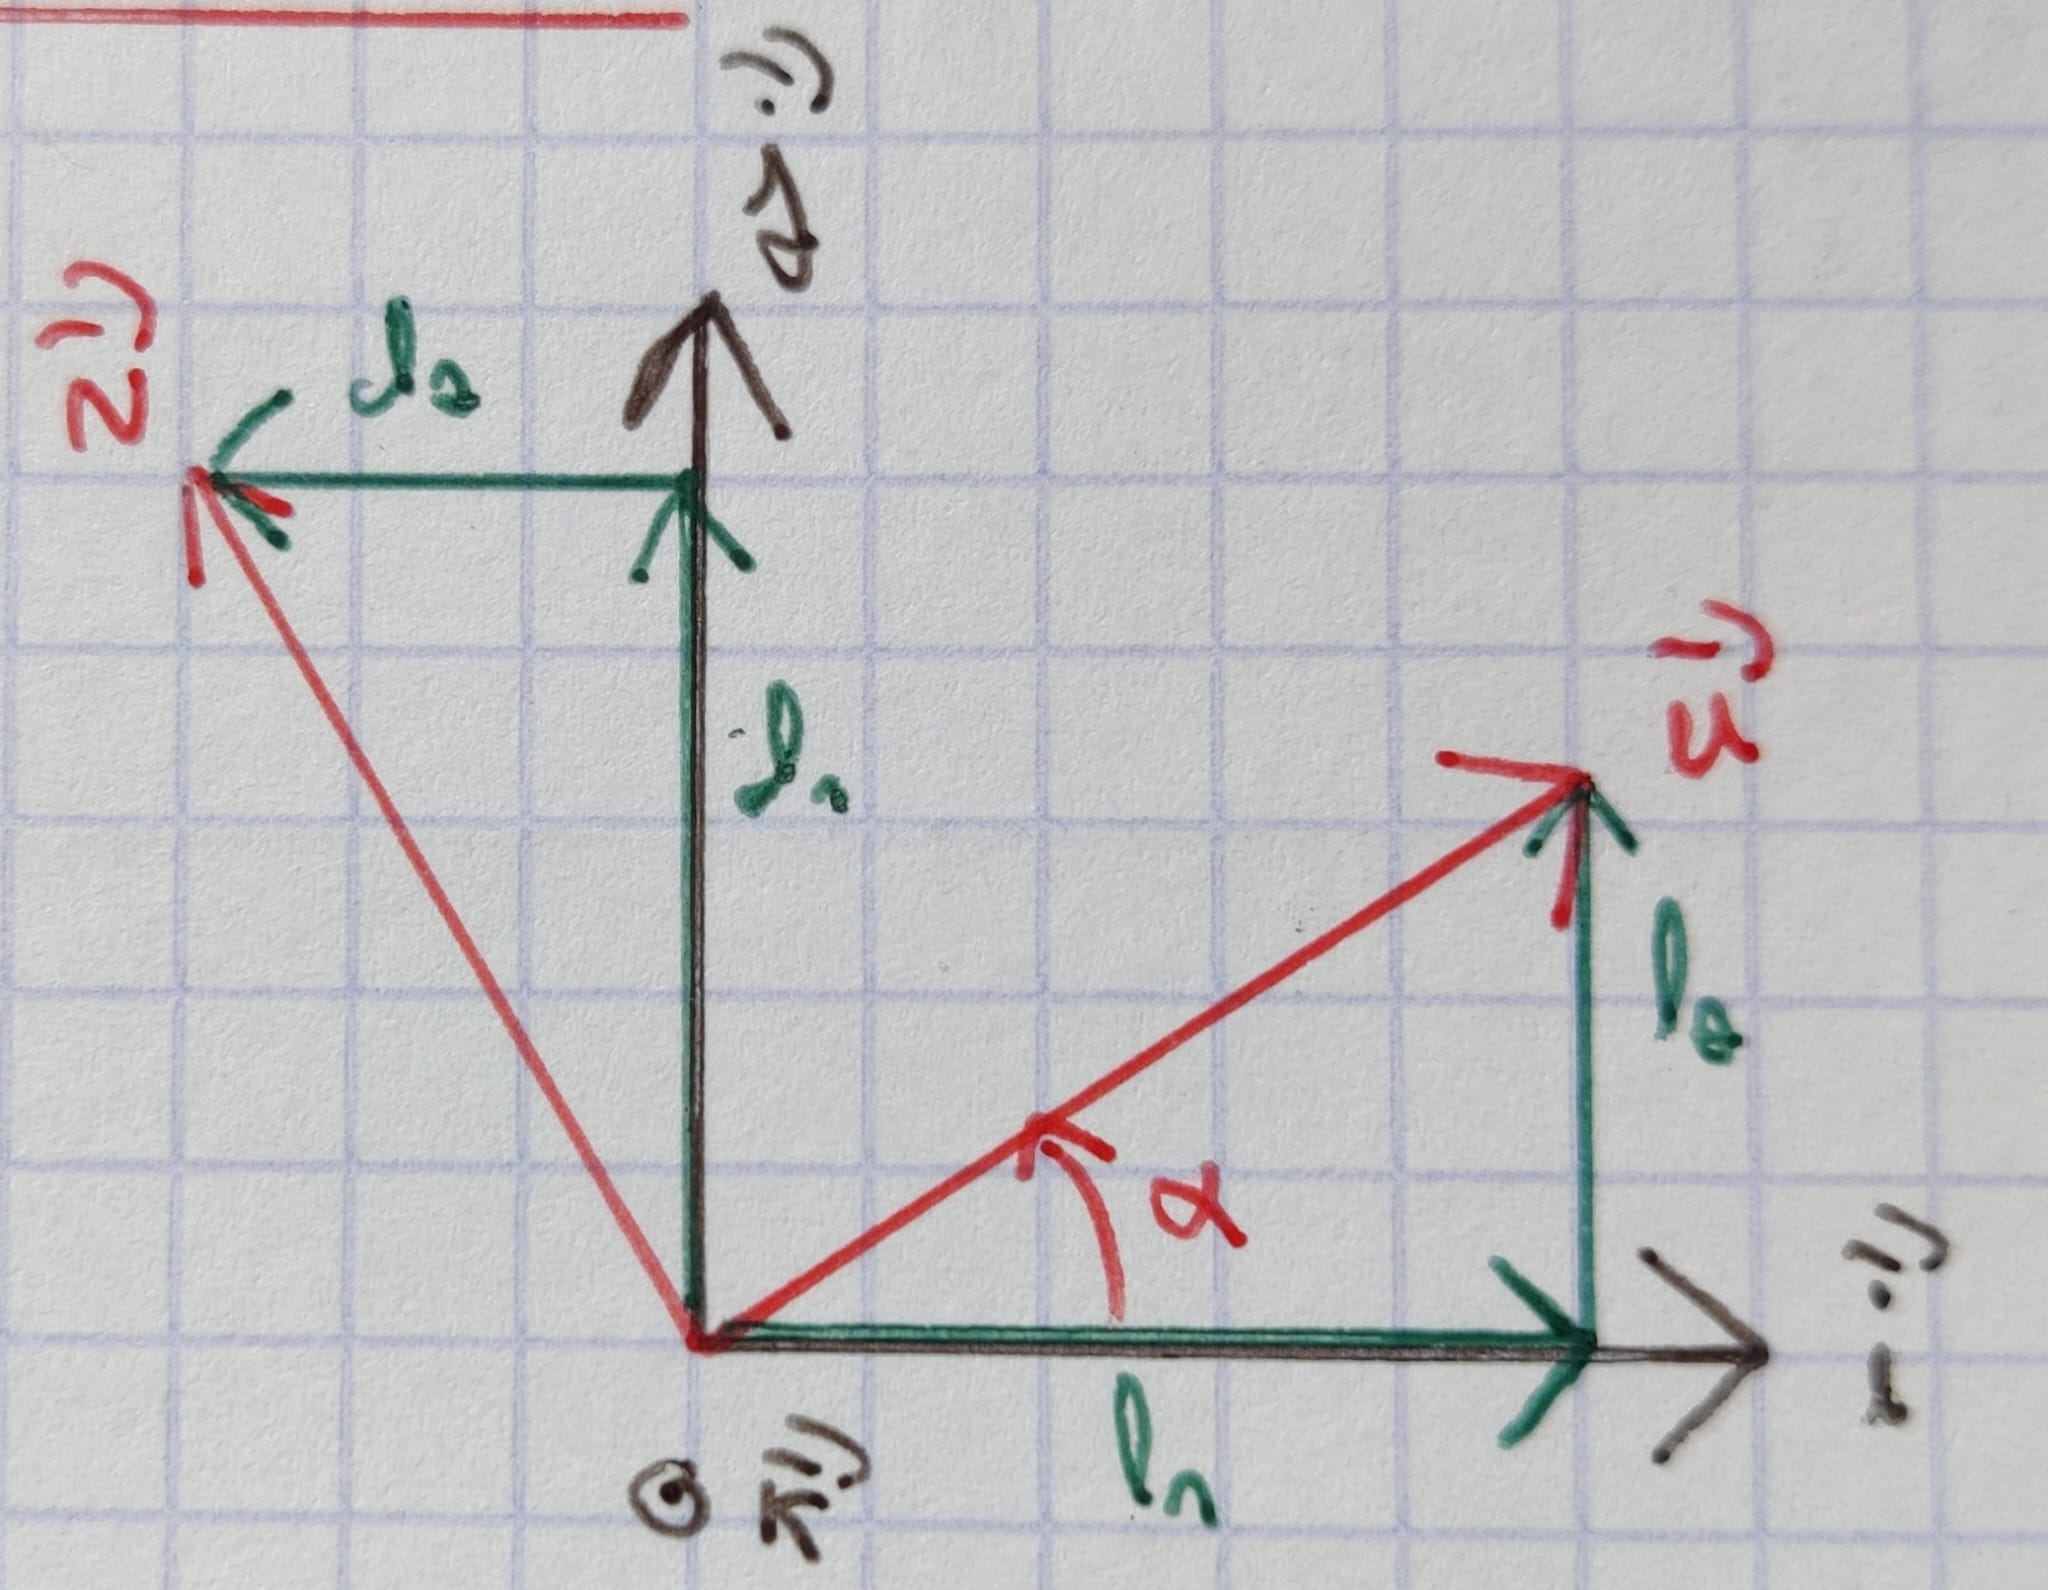 j⃗
z⃗
l₂
l₁
u⃗
l₂
α
i⃗
l₁
k⃗